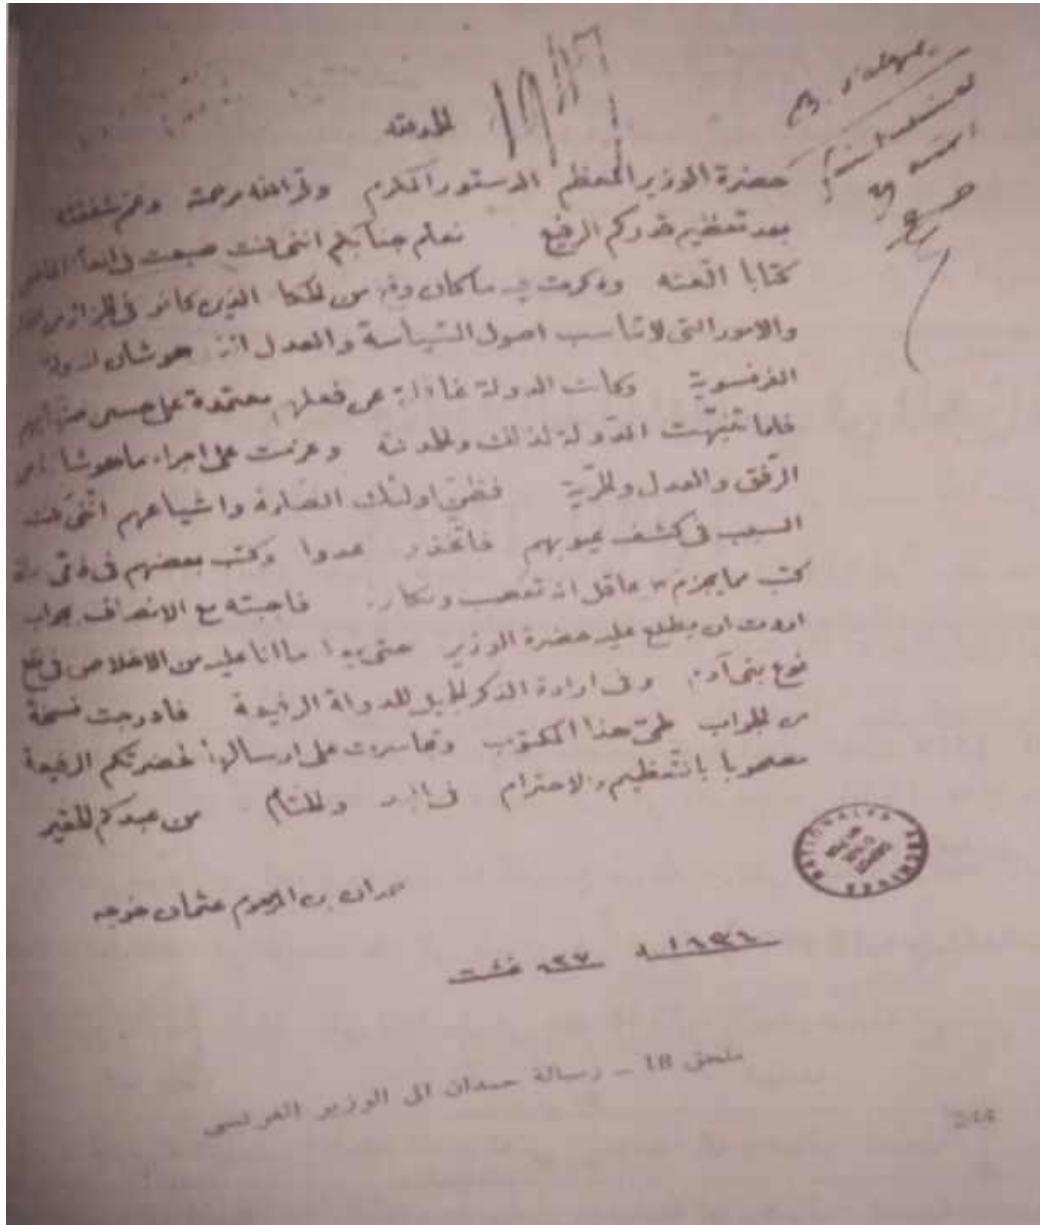 الحمد لله
حضرة الوزير المعظم الدستور المكرم وفر الله حرمته وعم شفقته
بعد تعظيم قدركم الرفيع نعلم جنابكم انني كنت صبعت في
كتابا الفته وذكرت فيه ما كان وقع من الحكا الذين كانو في الجزاير
والامور التي لا تناسب اصول السياسة والعدل الذي هو شان الدولة
الفرنسوية وكانت الدولة غافلة عن فعلهم معتمدة على حسن
فلما تنبهت الدولة لذلك والحمد لله وعزمت على اجراء ما هو شانها من
الرفق والعدل والحرية فظن اولئك الضارة واشياعهم انني كنت
السبب في كشف عيوبهم فاتخذوني عدوا وكتب بعضهم في ذمي
كتب مما يجزم عاقل انه تعصب فاجبته مع الانصاف بجواب
اردت ان يطلع عليه حضرة الوزير حتى ما انا عليه من الاخلاص في نفع
نوع بني آدم وفي ارادة الذكر الجميل للدولة الرفيعة فادرجت نسخة
من الجواب طي هذا المكتوب وتجاسرت على ارسالها لحضرتكم الرفيعة
مصحوبا بالتعظيم والاحترام في البدء والختام من عبدكم الحقير
حمدان بن المرحوم عثمان خوجه
NATIONALES ARCHIVES
غشت
ملحق 18 ــ رسالة حمدان الى الوزير الفرنسي
244